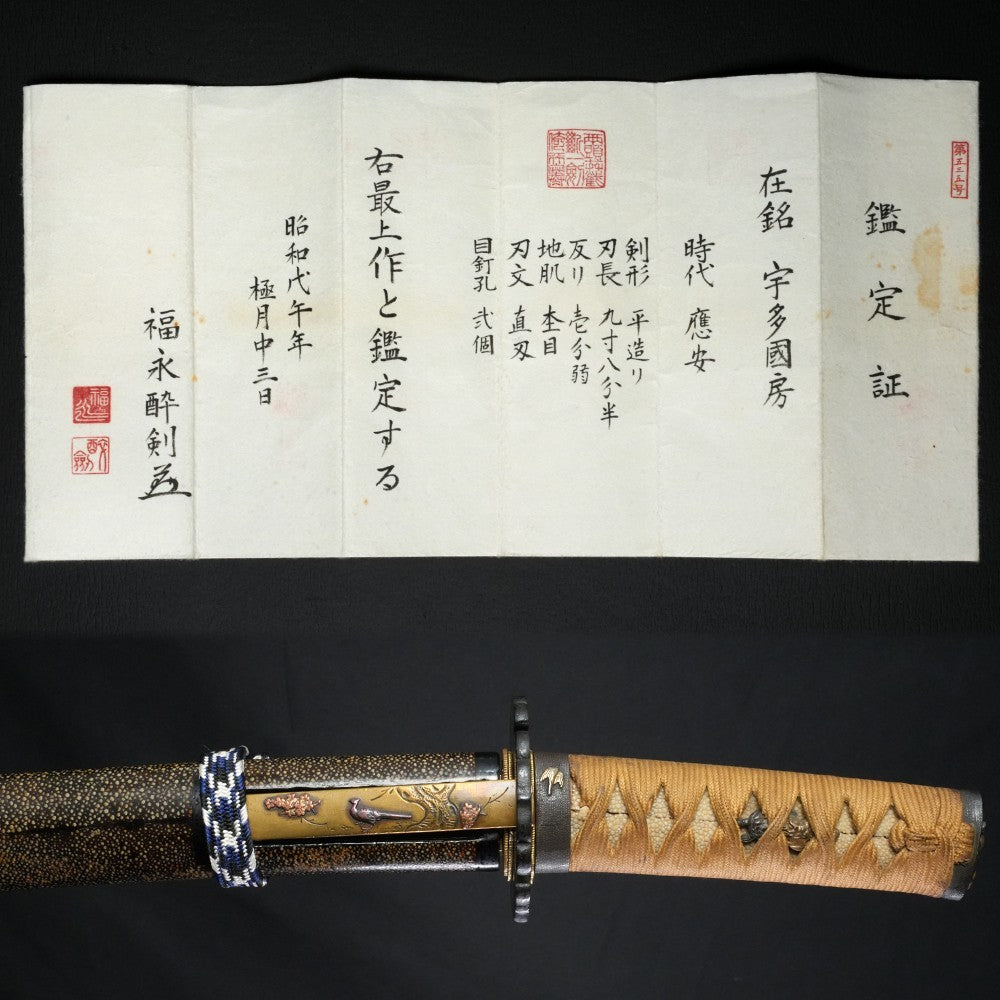 第五三五号
鑑定証
在銘 宇多國房
時代 應安
剣形 平造り
刃長 九寸八分半
反り 壱分弱
地肌 杢目
刃文 直刃
目釘孔 弐個
右最上作と鑑定する
昭和戊午年
極月中三日
福永酔剣